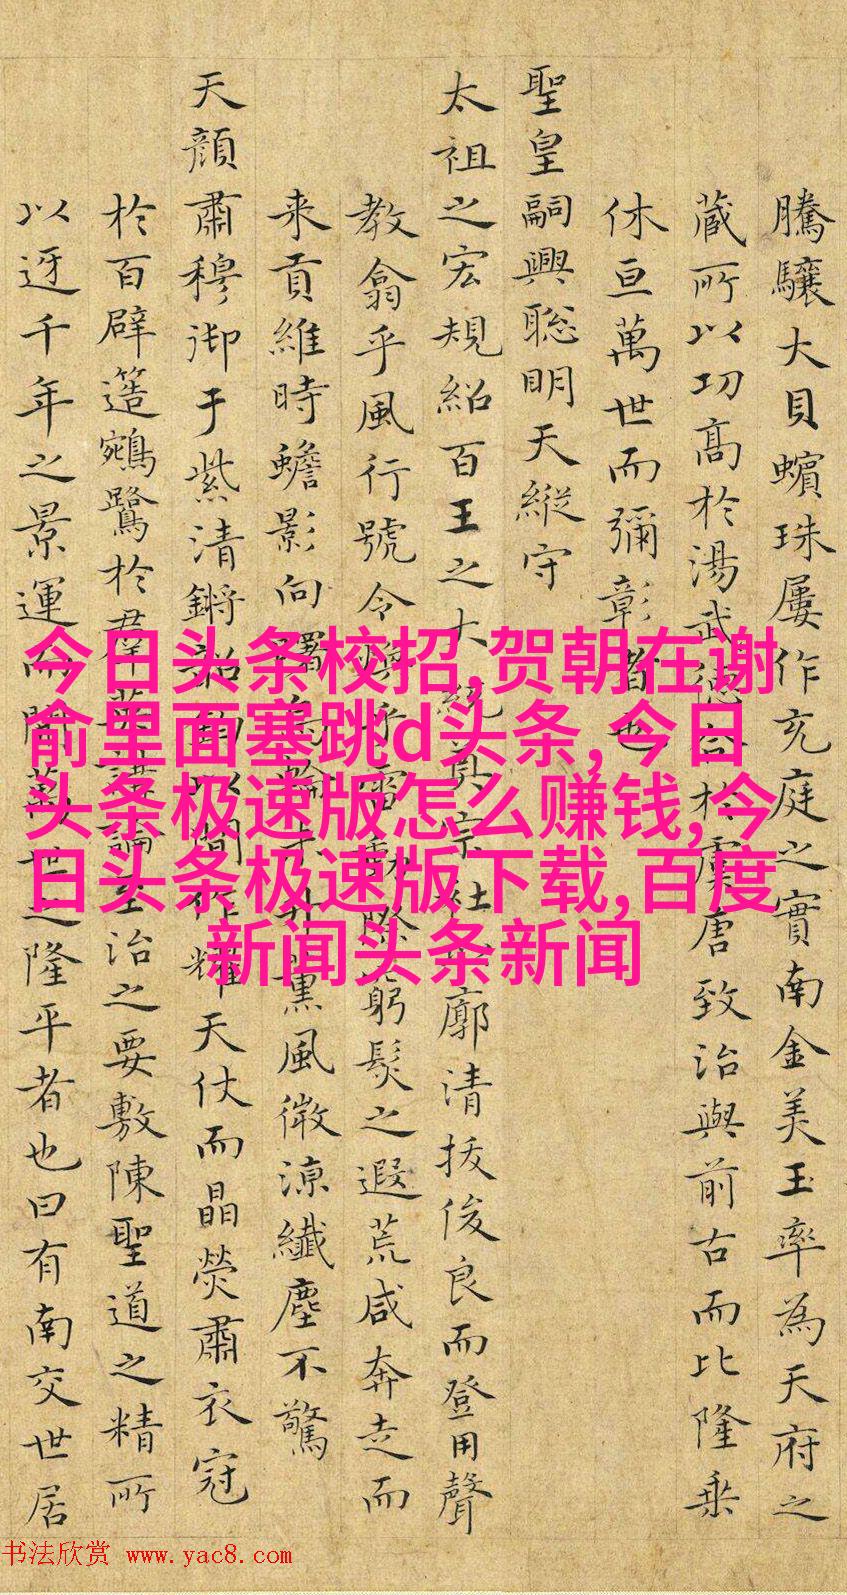 騰驤大貝蠙珠屢作充庭之實南金美玉率為天府之
蔵所以功髙於湯武於虞唐致治與前古而比隆乗
休亘萬世而彌彰者也
聖皇嗣興聡明天縦守
太祖之宏規紹百王之大統真宗社廓清抜俊良而登用聲
教翕乎風行號令於雷際窮髮之遐荒咸奔走而
来貢維時蟾影向未升薫風微涼纖塵不驚
天顔肅穆御于紫清鏘作耀天仗而晶熒肅衣冠
於百辟簉鵷鷺於群英講論至治之要敷陳聖道之精所
以迓千年之景運而開萬世之隆平者也曰有南交世居
今日头条校招,贺朝在谢
俞里面塞跳d头条,今日
头条极速版怎么赚钱,今
日头条极速版下载,百度
新闻头条新闻
书法欣赏 www.yac8.com